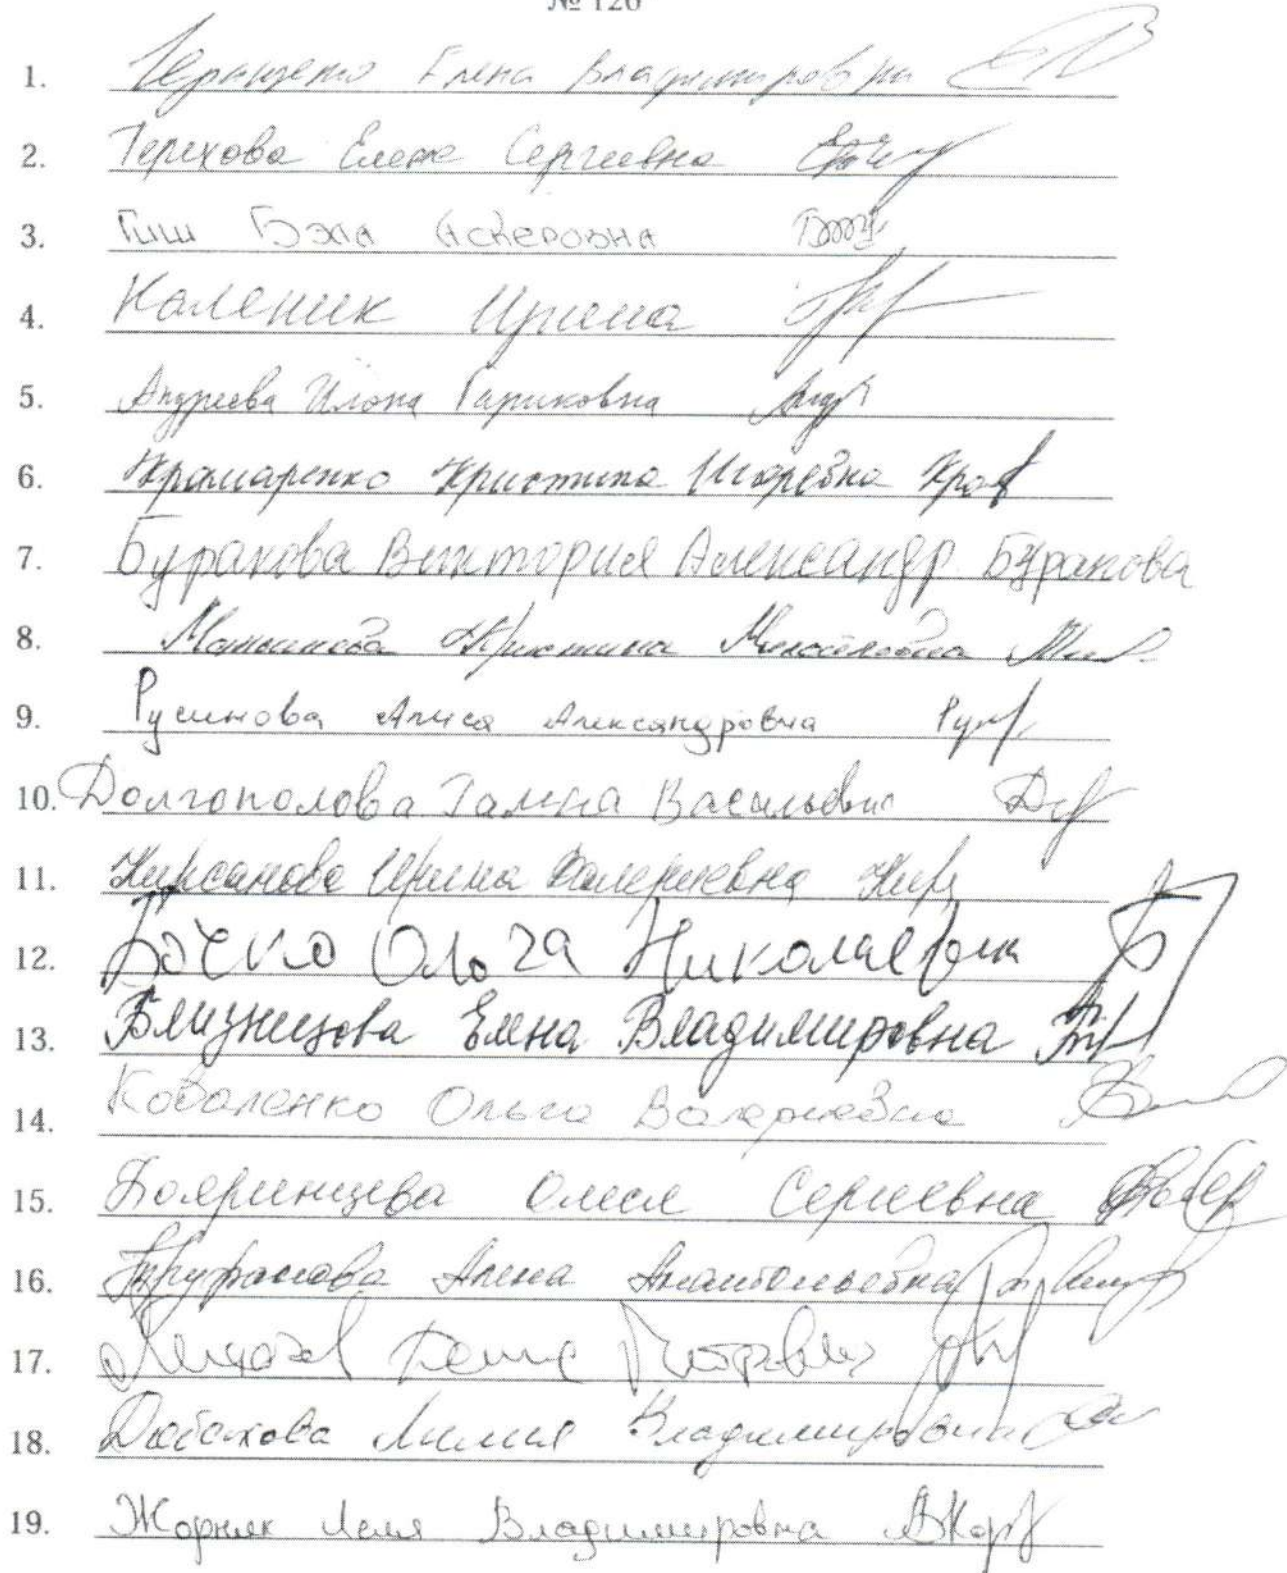 № 126
1. Елена Владимировна
2. Терехова Елена Сергеевна
3. Гиш Бэла Аскеровна
4. Каленик Ирина
5. Андреева Илона Гариковна Анд
6. Крамаренко Кристина Игоревна Кра
7. Буракова Виктория Александр. Буракова
8. Кристина
9. Русинова Алиса Александровна Рус
10. Долгополова Галина Васильевна
11. Кирсанова Ирина Валериевна Кир
12. Бочко Ольга Николаевна
13. Близнецова Елена Владимировна
14. Коваленко Ольга Валериевна
15. Бояринцева Олеся Сергеевна
16. Труфанова Алена Анатольевна
17. Денис Петрович
18. Лилия Владимировна
19. Жорняк Владимировна